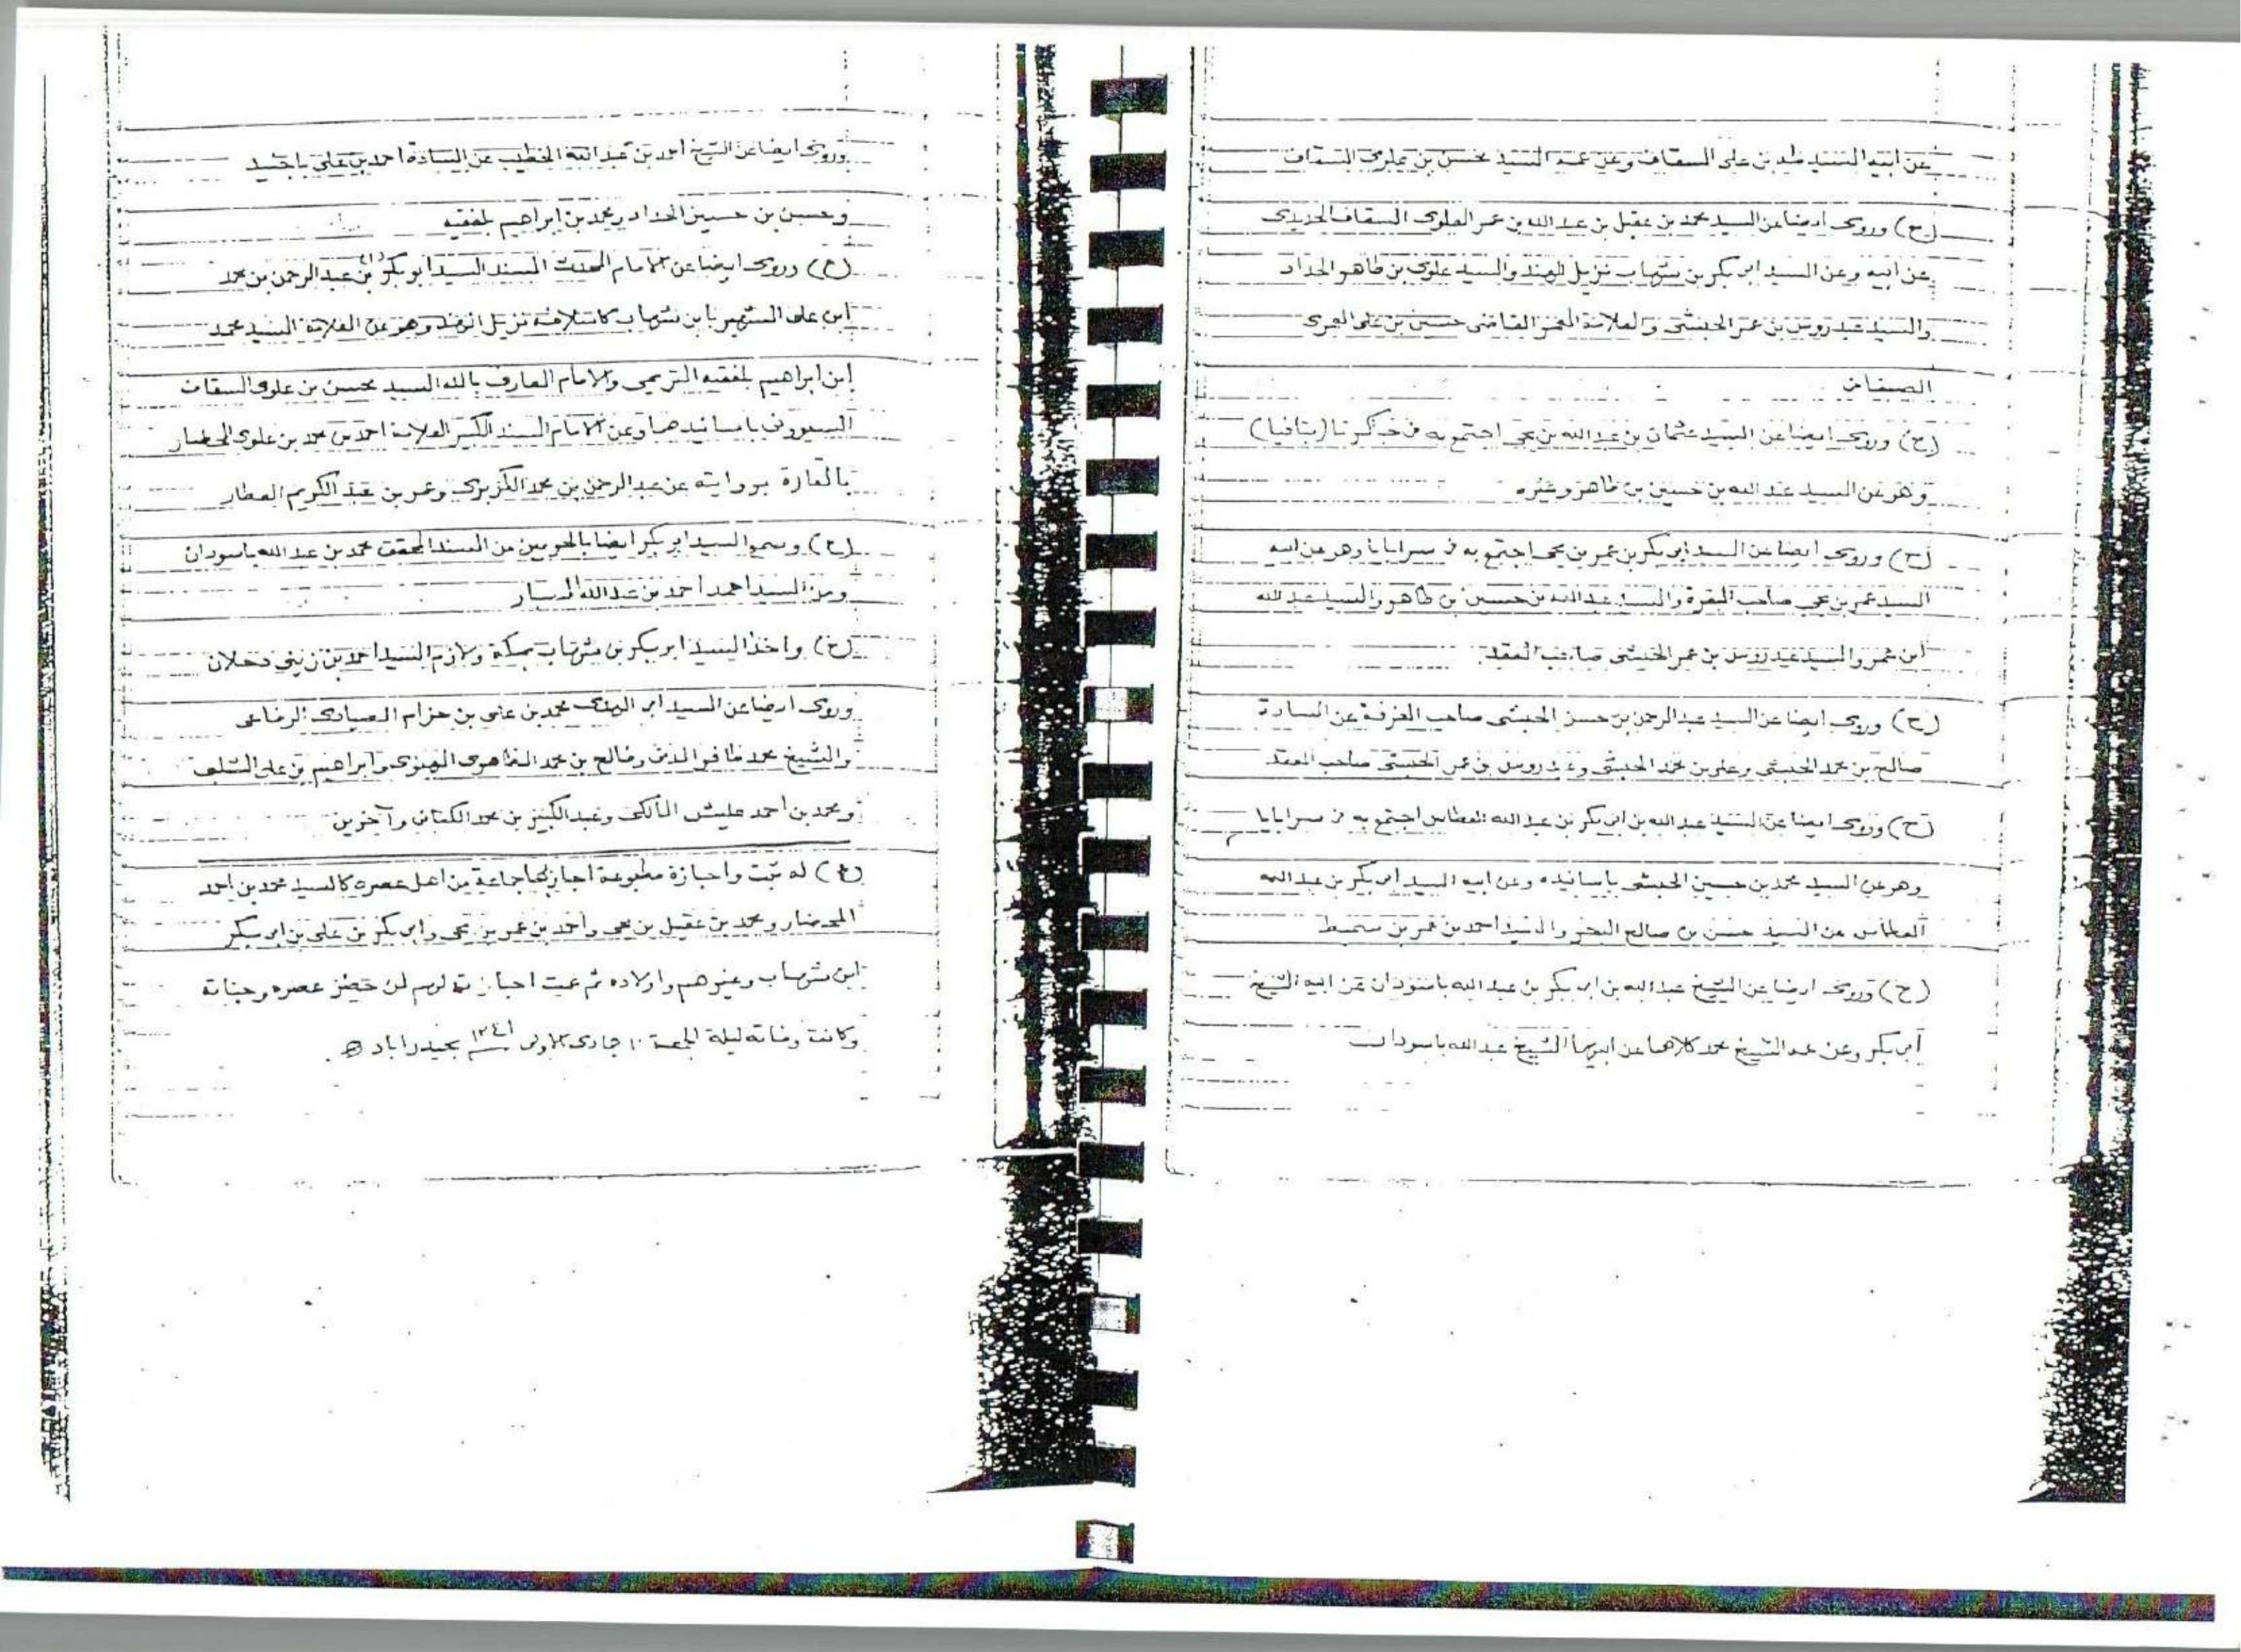 عن ابيه السيد طه بن علي السقاف وعن عمه السيد محسن بن علوي السقاف
(ح) وروى ايضا عن السيد محمد بن عقيل بن عبد الله بن عمر العلوي السقاف
عن ابيه وعن السيد ابو بكر بن شهاب نزيل الهند والسيد علوي بن طاهر الحداد
والسيد عيدروس بن عمر الحبشي والعلامة المعمر القاضي حسين بن علي العمري
الصنعاني
(ح) وروى ايضا عن السيد عثمان بن عبد الله بن يحي اجتمع به في جاكرتا (بتافيا)
وهو عن السيد عبد الله بن حسين بن طاهر وغيره
(ح) وروى ايضا عن السيد ابو بكر بن عمر بن يحي اجتمع به في سرابايا وهو عن ابيه
السيد عمر بن يحي صاحب والسيد عبد الله بن حسين بن طاهر والسيد عبد الله
ابن عمر والسيد عيدروس بن عمر الحبشي صاحب العقد
(ح) وروى ايضا عن السيد عبد الرحمن بن حسن الحبشي صاحب الغرفة عن السادة
صالح بن محمد الحبشي وعلي بن محمد الحبشي وعيدروس بن عمر الحبشي صاحب العقد
(ح) وروى ايضا عن السيد عبد الله بن ابي بكر بن عبد الله العطاس اجتمع به في سرابايا
وهو عن السيد محمد بن حسين الحبشي باسانيده وعن ابيه السيد ابي بكر بن عبد الله
العطاس عن السيد حسن بن صالح البحر والسيد احمد بن عمر بن سميط
(ح) وروى ايضا عن الشيخ عبد الله بن ابي بكر بن عبد الله باسودان عن ابيه الشيخ
أبي بكر وعن عمه الشيخ محمد كلاهما عن ابيهما الشيخ عبد الله باسودان
وروى ايضا عن الشيخ احمد بن عبد الله الخطيب عن السادة احمد بن علي باجنيد
وحسن بن حسين الحداد ومحمد بن ابراهيم بلفقيه
(ح) وروى ايضا عن الامام المحدث المسند السيد ابو بكر بن عبد الرحمن بن محمد
ابن علي الشهير بابن شهاب كاسلافه نزيل الهند وهو عن العلامة السيد محمد
ابن ابراهيم بلفقيه التريمي والامام العارف بالله السيد محسن بن علوي السقاف
السيوون باسانيدهما وعن الامام المسند الكبير العلامة احمد بن محمد بن علوي المحضار
بالقارة بروايته عن عبد الرحمن بن محمد الكزبري وعمر بن عبد الكريم العطار
(ح) وسمع السيد ابو بكر ايضا بالحرمين من المسند المحقق محمد بن عبد الله باسودان
ومن السيد احمد بن عبد الله
(ح) واخذ السيد ابو بكر بن شهاب بمكة ولازم السيد احمد بن زيني دحلان
وروى ايضا عن السيد ابو الهدى محمد بن علي بن حزام الصيادي الرفاعي
والشيخ محمد ظافر المدني وفالح بن محمد الظاهري المهنوي وابراهيم بن علي
ومحمد بن احمد عليش المالكي وعبد الكبير بن محمد الكتاني وآخرين
(ح) له ثبت واجازة مطبوعة اجاز بها جماعة من اهل عصره كالسيد محمد بن احمد
المحضار ومحمد بن عقيل بن يحي واحمد بن عمر بن يحي وابي بكر بن علي بن ابي بكر
ابن شهاب وغيرهم واولاده ثم عمت اجازته لهم لمن حضر عصره وحياته
وكانت وفاته ليلة الجمعة ١٠ جمادى الاولى ١٣٤١ بحيدراباد